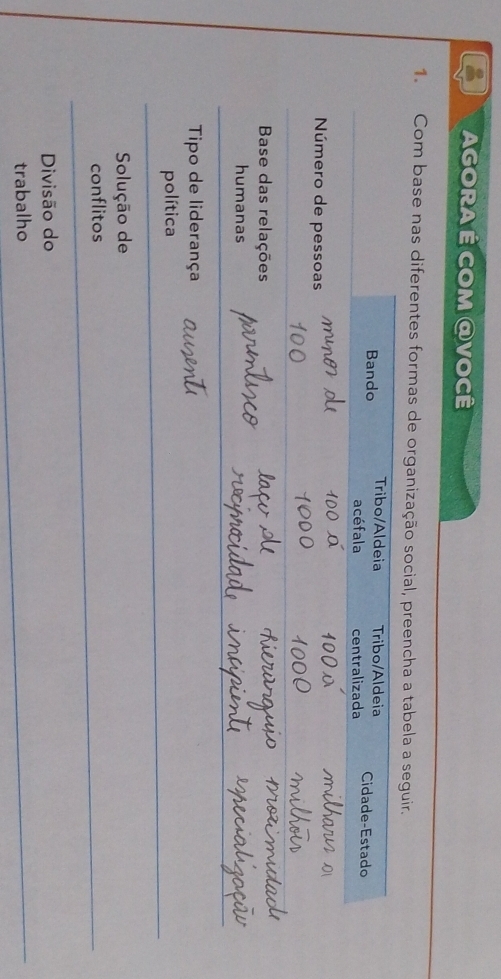 AGORA É COM @VOCÊ
1. Com base nas diferentes formas de organização social, preencha a tabela a seguir.
Bando Tribo/Aldeia acéfala Tribo/Aldeia centralizada Cidade-Estado
Número de pessoas menos de 100 100 á 1000 100 á 1000 milhares a milhões
Base das relações humanas parentesco laço de reciprocidade hierarquia incipiente proximidade especialização
Tipo de liderança política ausente
Solução de conflitos
Divisão do trabalho